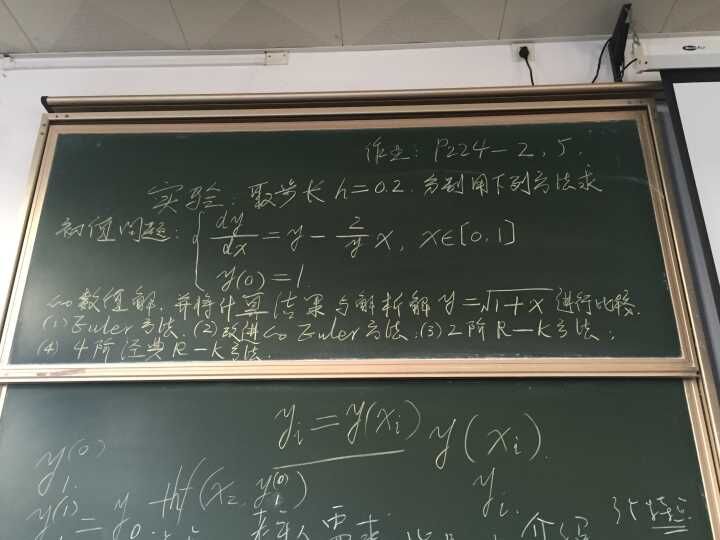 作业: P224-2, 5.
实验: 取步长 h=0.2. 分别用下列方法求
初值问题: { dy/dx = y - 2/y x, x∈[0,1]
y(0)=1
的数值解, 并将计算结果与解析解 y=√1+x 进行比较.
(1) Euler方法. (2) 改进的Euler方法; (3) 2阶R-K方法;
(4) 4阶经典R-K方法.
y_i = y(x_i) y(x_i).
y_1^(0)
+hf(x_2, y_1^(0)) y_i.
y_1^(1) = y_0